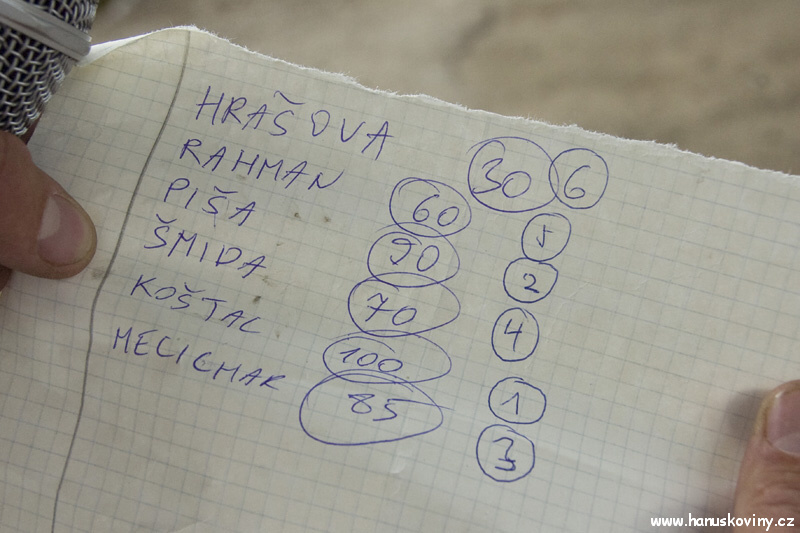 HRAŠOVA 30 6
RAHMAN 60 5
PIŠA 90 2
ŠMIDA 70 4
KOŠTAL 100 1
MELICHAR 85 3
www.hanuskoviny.cz